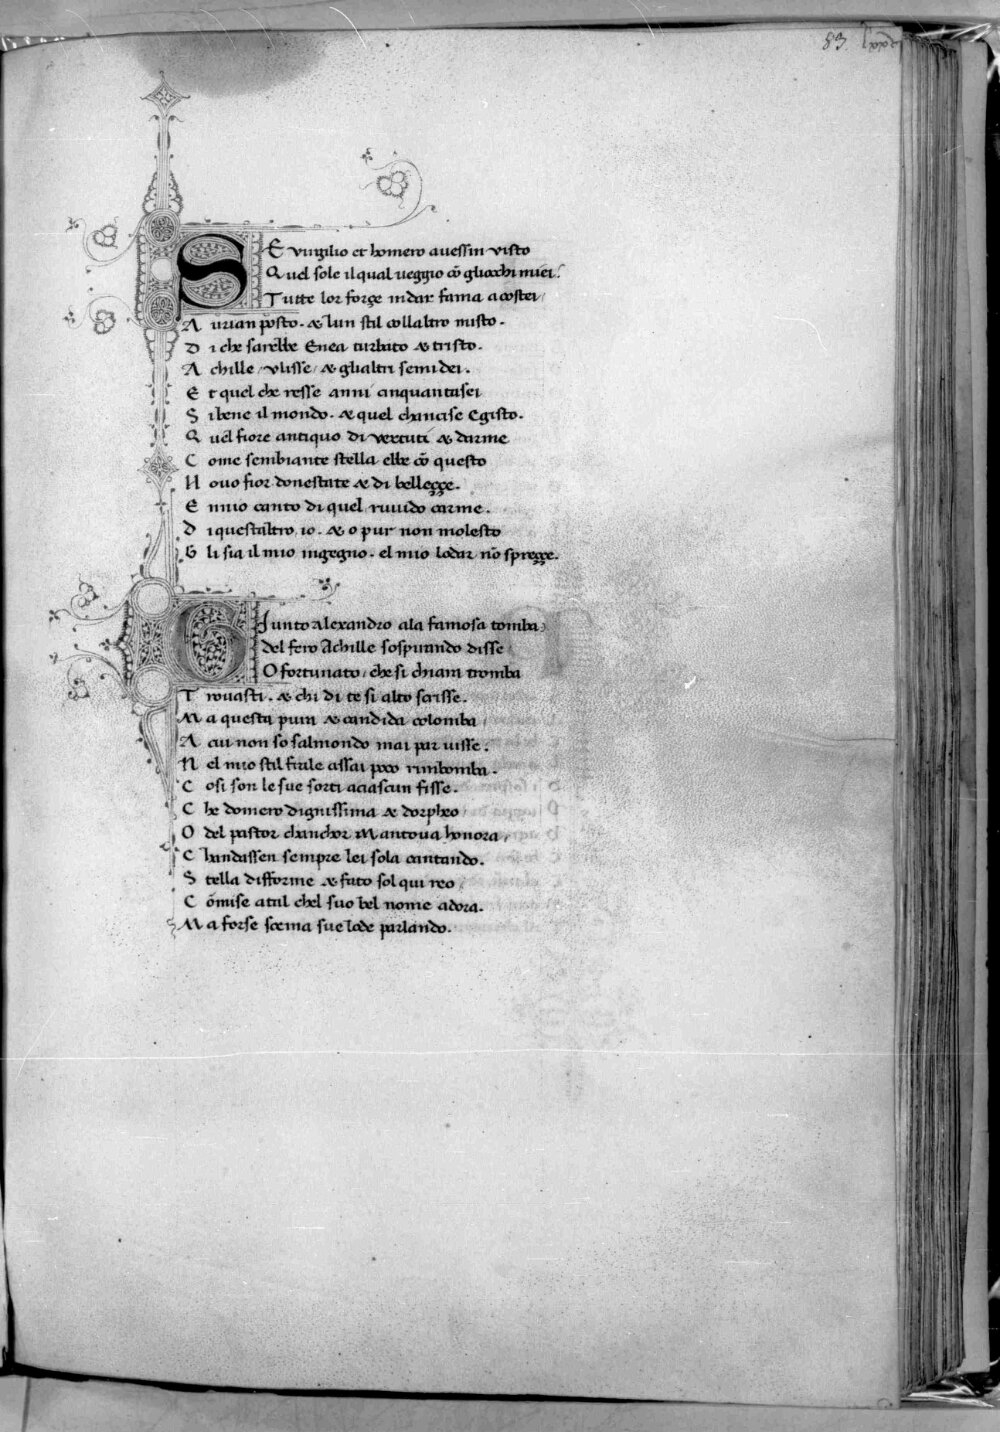 83. lxxxi
SE virgilio et homero auessin visto
Quel sole il qual ueggio cō gliocchi miei:
Tutte lor forze indar fama acostei
A urian pōsto. & lun stil collaltro misto.
D i che sarebbe Enea turbato & tristo.
A chille / vlisse / & glialtri semidei.
E t quel che resse anni cinquantasei
S i bene il mondo. & quel chancise Egisto.
Q uel fiore antiquo di vertuti & darme
C ome sembiante stella ebbe cō questo
N ouo fior donestate & di bellezze.
E nnio canto di quel ruuido carme.
D i questaltro io. & o pur non molesto
G li sia il mio ingegno. el mio lodar nō sprezze.
GIunto alexandro ala famosa tomba
del fero Achille sospirando disse
O fortunato / che si chiara tromba
T rouasti. & chi di te si alto scrisse.
M a questa pura & candida colomba /
A cui non so salmondo mai par uisse:
N el mio stil frale assai poco rimbomba.
C osi son le sue sorti aciascun fisse.
C he domero dignissima & dorpheo /
O del pastor chanchor Mantoua honora /
C handassen sempre lei sola cantando.
S tella difforme & fato sol qui reo /
C ōmise a tal chel suo bel nome adora.
M a forse scema sue lode parlando.